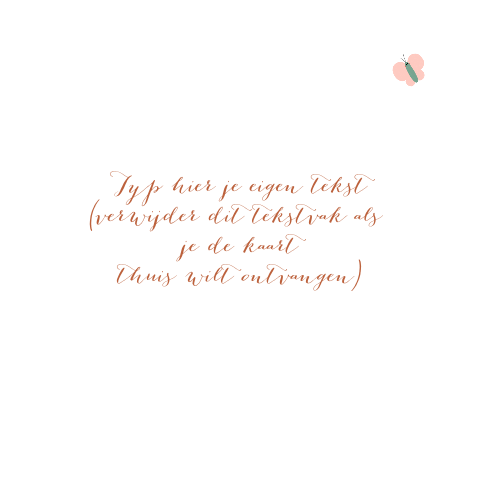 Typ hier je eigen tekst
(verwijder dit tekstvak als
je de kaart
thuis wilt ontvangen)